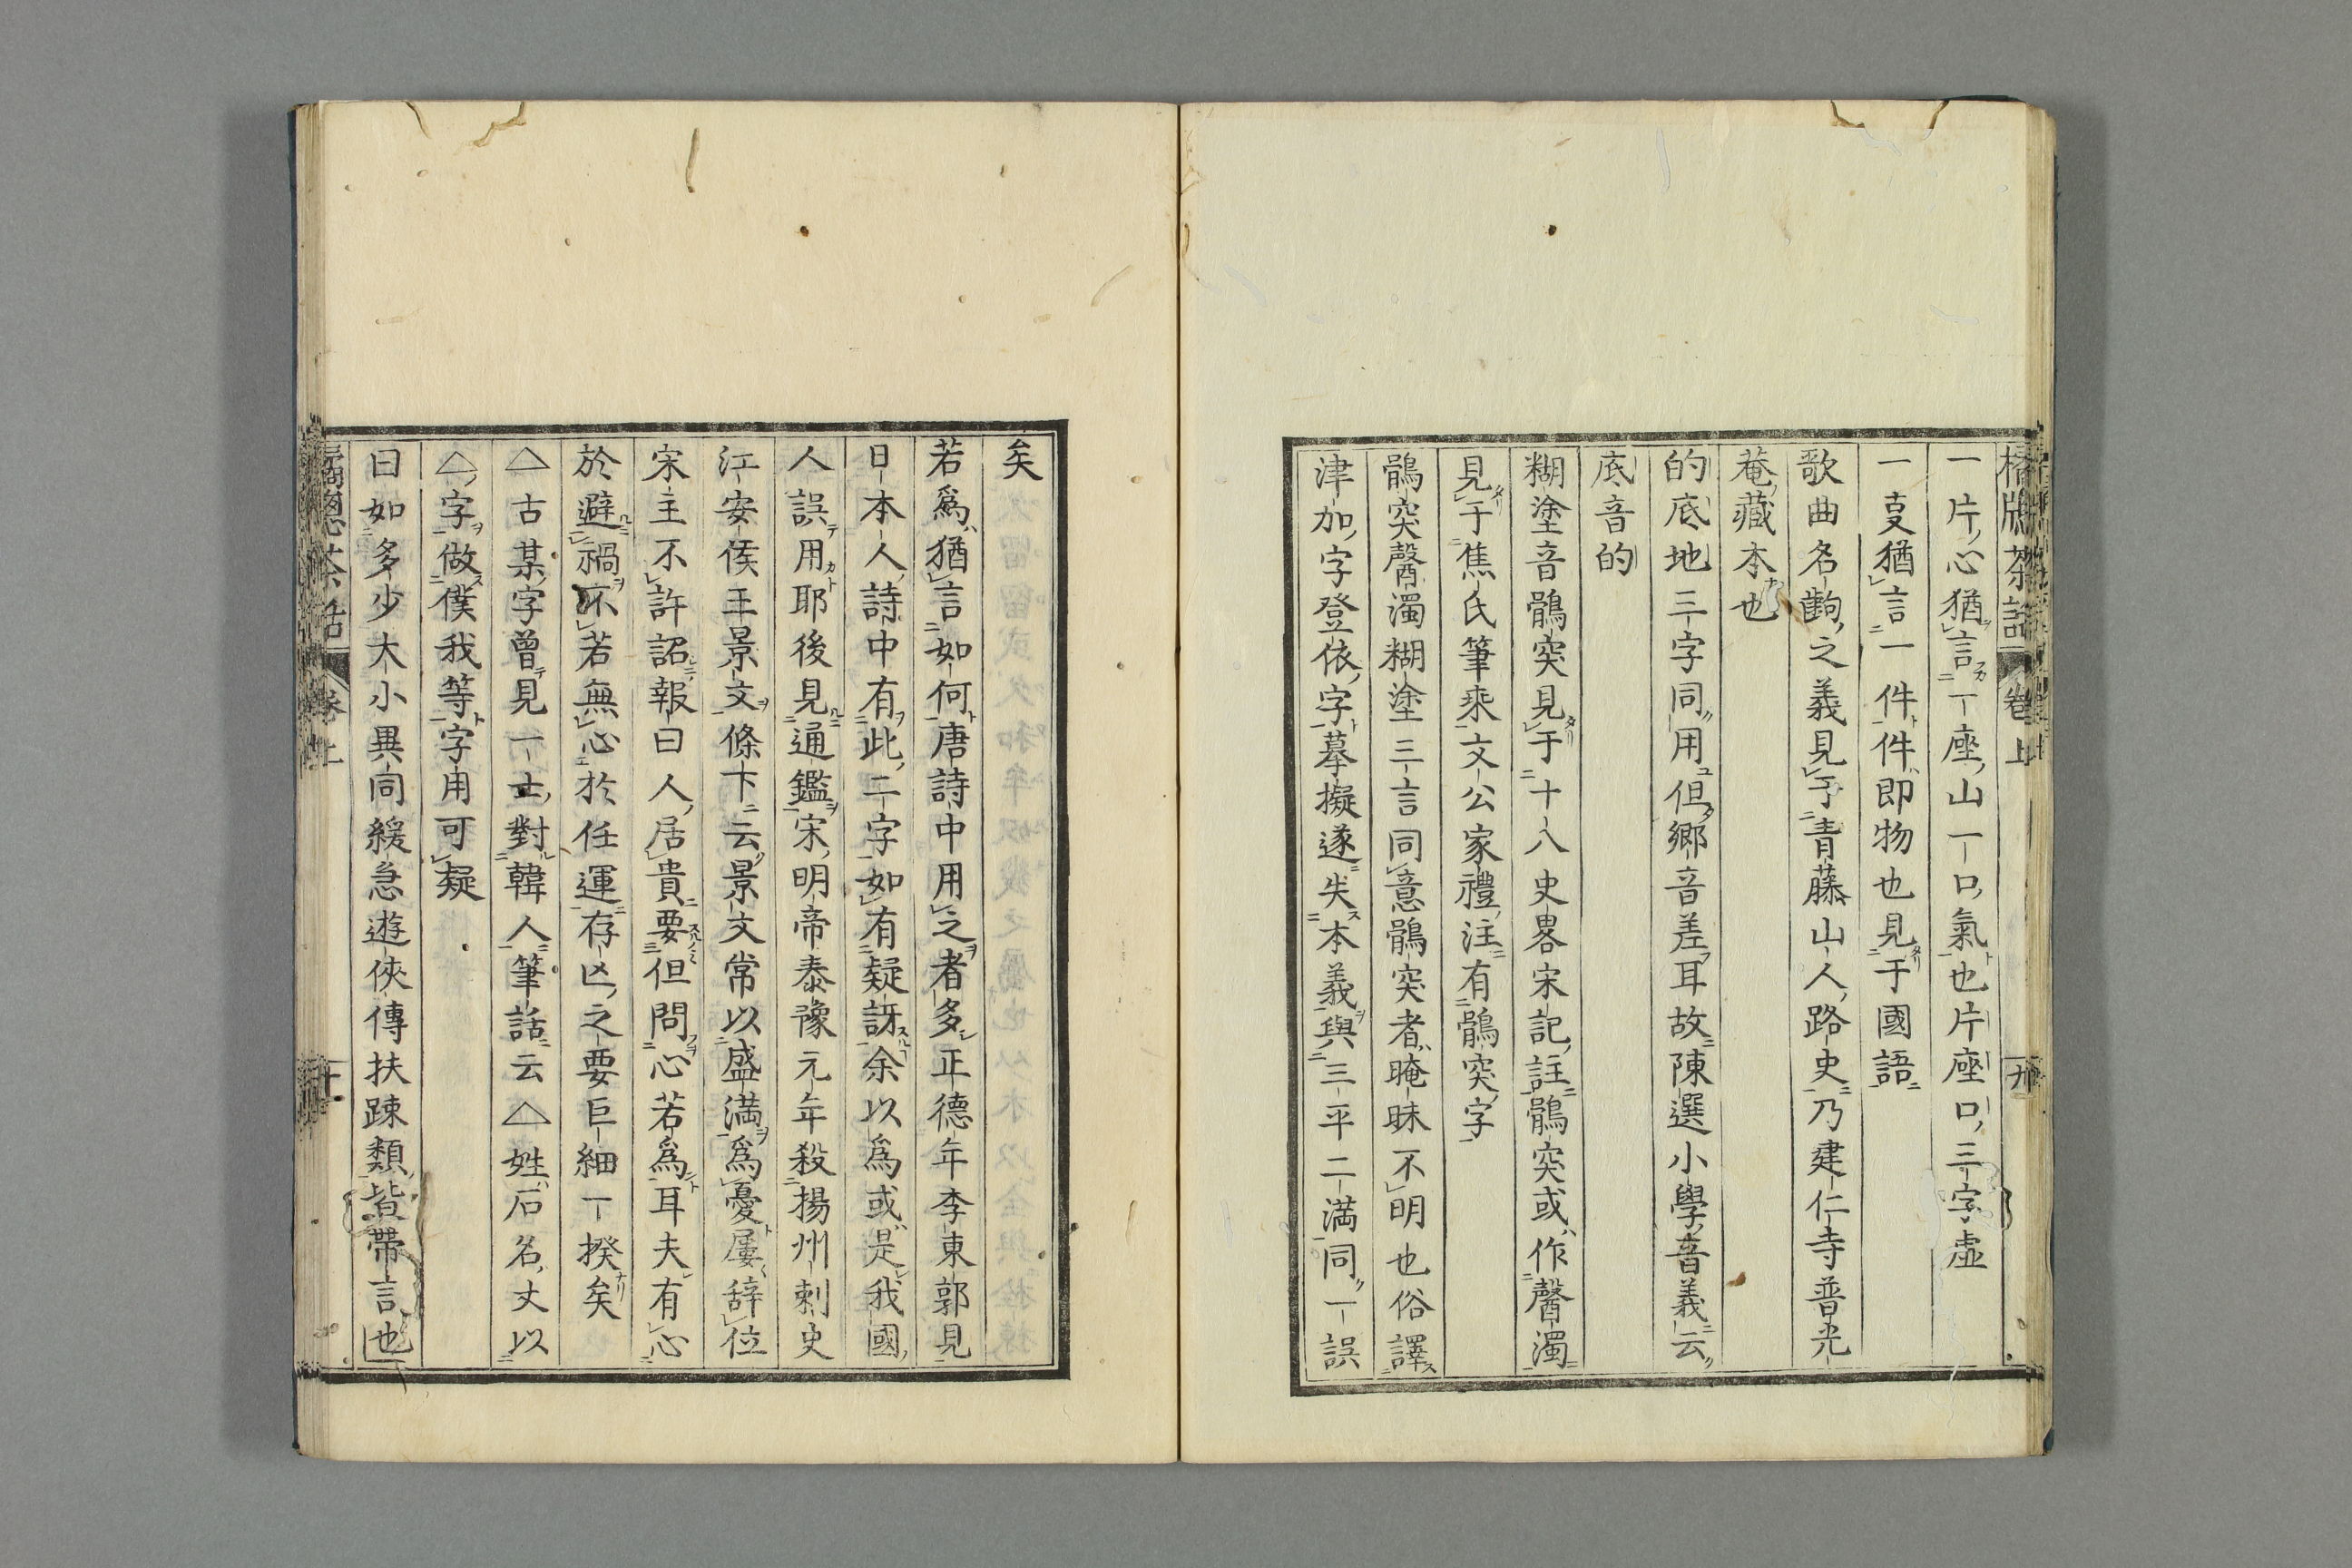 橘牕茶話 卷上 九
一片心猶言一座山一口氣也片座口三字虛
一叓猶言一件件即物也見于國語
歌曲名齣之義見于青藤山人路史乃建仁寺普光
菴藏本也
的底地三字同用但鄉音差耳故陳選小學音義云
底音的
糊塗音鶻突見于十八史畧宋記註鶻突或作㲉濁
見于焦氏筆乘文公家禮注有鶻突字
鶻突㲉濁糊塗三言同意鶻突者晻昧不明也俗譯
津加字登依字摹擬遂失本義與三平二満同一誤
矣
若爲猶言如何唐詩中用之者多正德年李東郭見
日本人詩中有此二字如有疑訝余以爲或是我國
人誤用耶後見通鑑宋明帝泰豫元年殺揚州刺史
江安侯王景文條下云景文常以盛満爲憂屢辞位
宋主不許詔報曰人居貴要但問心若爲耳夫有心
於避禍不若無心於任運存亾之要巨細一揆矣
△古某字曾見一士對韓人筆話云△姓石名丈以
△字做僕我等字用可疑
曰如多少大小異同緩急遊俠傳扶踈類皆帶言也
橘牕茶話 卷上 十